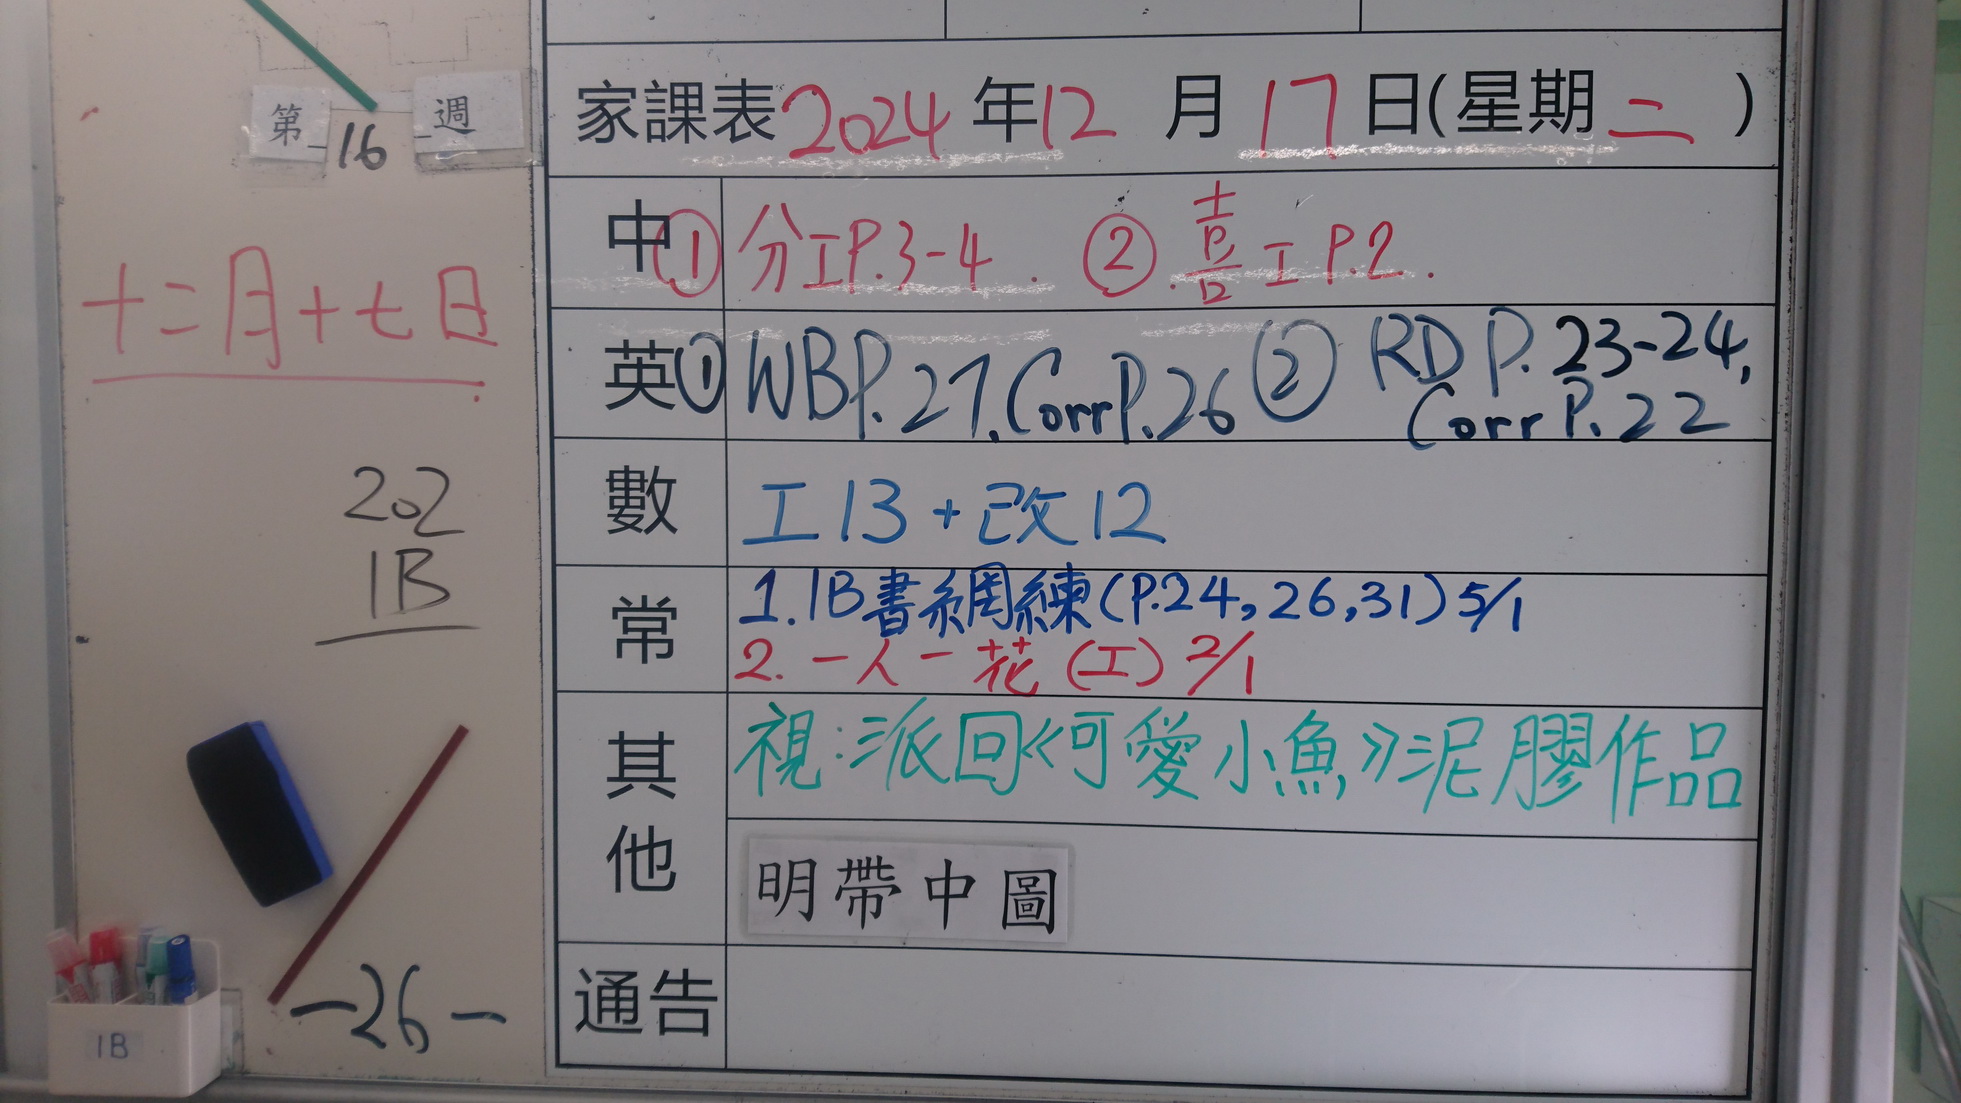 第 16 週
十二月十七日
202
1B
-26-
1B
家課表 2024 年 12 月 17 日(星期二)
中 ① 分工P.3-4. ② 喜工P.2.
英 ① WB P.27. Corr P.26 ② RD P. 23-24,
Corr P. 22
數 工13+改12
常 1. 1B書網練(P.24,26,31) 5/1
2. 一人一花(工) 2/1
其他 視:派回《可愛小魚》泥膠作品
明帶中圖
通告